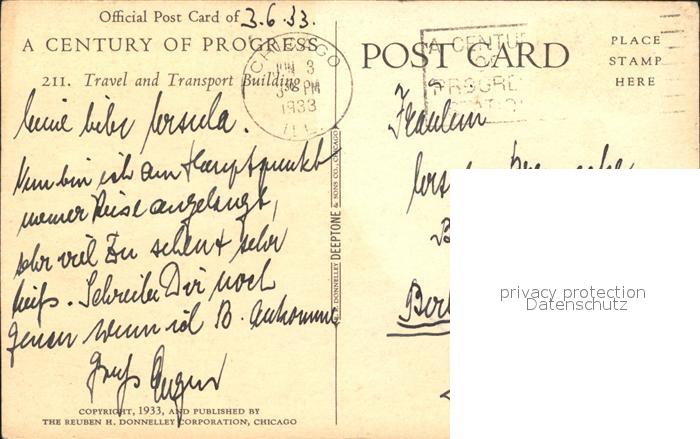 Official Post Card of 3.6.33.
A CENTURY OF PROGRESS
211. Travel and Transport Building
Meine liebe Ursula.
Nun bin ich am Hauptpunkt
meiner Reise angelangt,
sehr viel zu sehen + sehr
heiß. Schreibe Dir noch
genau wenn ich B. ankomme
Gruß Eugen
COPYRIGHT, 1933, AND PUBLISHED BY
THE REUBEN H. DONNELLEY CORPORATION, CHICAGO
R. R. DONNELLEY & SONS CO., CHICAGO
DEEPTONE
CHICAGO
JUN 3
PM
1933
ILL.
A CENTU
OF
PROGRE
STATIO
POST CARD
PLACE
STAMP
HERE
Fräulein
Berl
privacy protection
Datenschutz